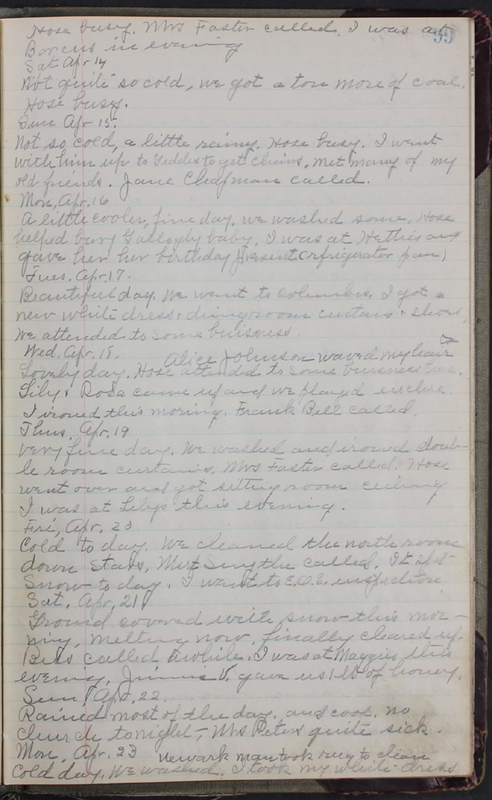 Hose busy. Mrs Foster called. I was at
59
Borens in evening
Sat Apr 14
Not quite so cold, we got a ton more of coal.
Hose busy.
Sun Apr 15.
Not so cold, a little rainy. Hose busy. I went
with him up to to get chairs, met many of my
old friends. Jane Chapman called.
Mon. Apr. 16
A little cooler, fine day, we washed some, Hose
helped bury baby. I was at Hetties and
gave her her birthday present (refrigerator pan)
Tues. Apr. 17.
Beautiful day. We went to Columbus, I got a
new white dress & dining room curtains & shoes.
We attended to some buisness.
Wed. Apr. 18. Alice Johnson waved my hair
Lovely day. Hose attended to some business
Lily & Rosa came up and we played euchre.
I ironed this morning. Frank Bell called.
Thus. Apr. 19
Very fine day. We washed and ironed doub-
le room curtains. Mrs Foster called. Hose
went over and got sitting room ceiling
I was at Lilys this evening.
Fri, Apr. 20
Cold to day. We cleaned the north room
down stairs, called. It
Snow to day. I went to inspection
Sat. Apr, 21
Ground covered write snow this mor-
ning, melting now, finally cleared up.
Bess called awhile. I was at Maggies this
evening, gave us 1 lb of honey.
Sun. Apr. 22.
Rained most of the day, and cool. no
church tonight - Mrs Peters quite sick.
Mon, Apr. 23 Newark man took rug to clean
Cold day. We washed. I took my white dress